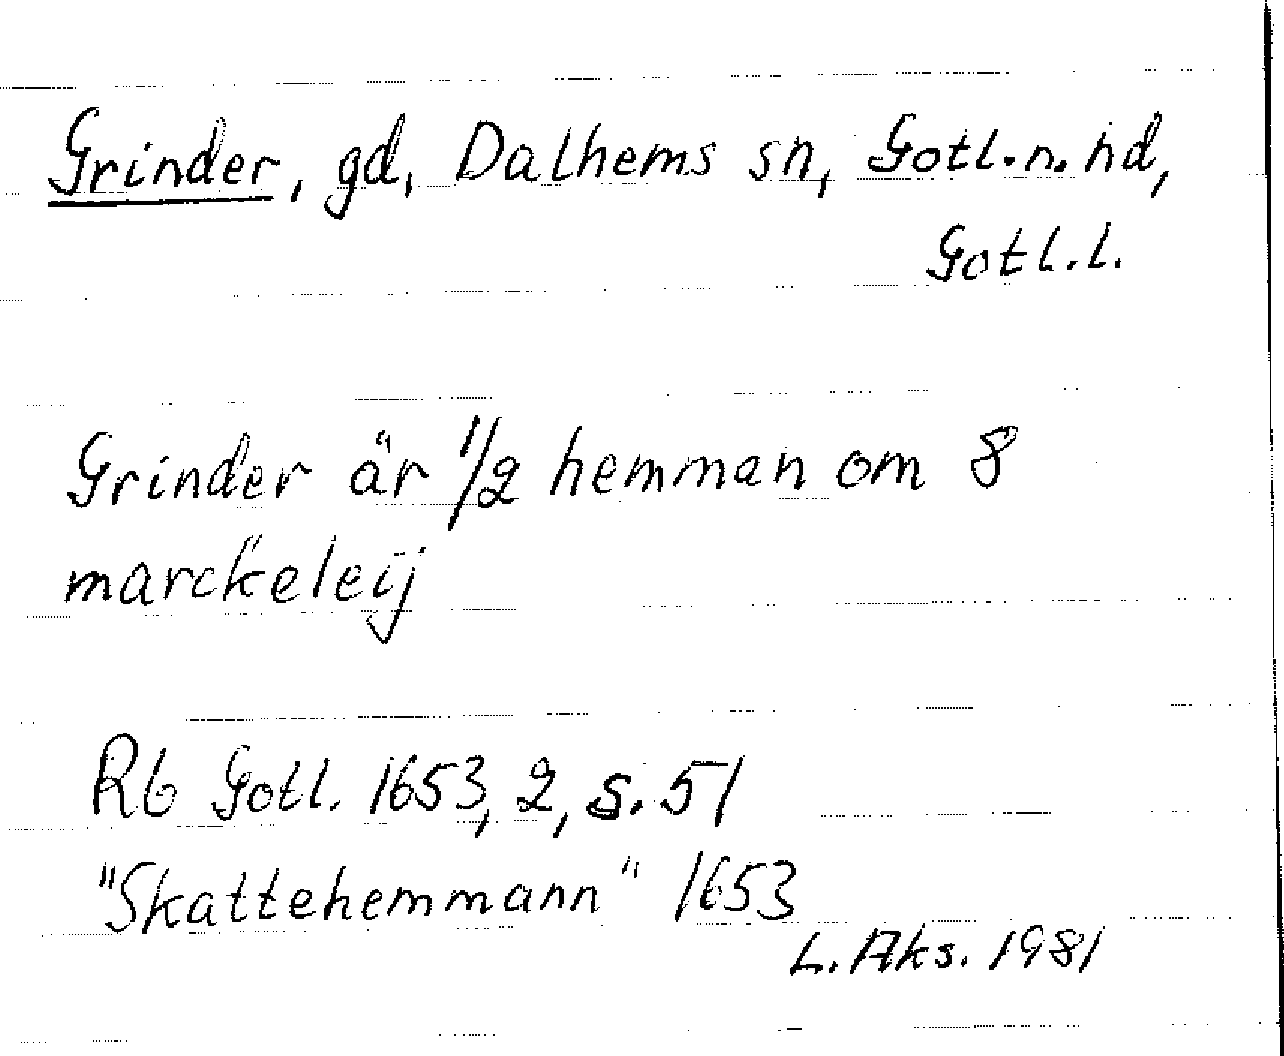 Grinder, gd, Dalhems sn, Gotl.n. hd,
Gotl.l.
Grinder är 1/2 hemman om 8
marckeleij
Rb Gotl. 1653, 2, s. 51
"Skattehemmann" 1653
L. Aks. 1981